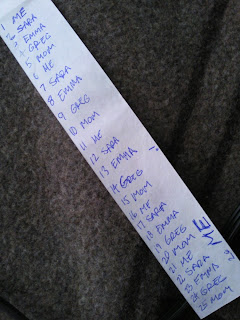 1 ME
2 SARA
3 EMMA
4 GREG
5 MOM
6 ME
7 SARA
8 EMMA
9 GREG
10 MOM
11 ME
12 SARA
13 EMMA
14 GREG
15 MOM
16 ME
17 SARA
18 EMMA
19 GREG
20 MOM
21 ME
22 SARA
23 EMMA
24 GREG
25 MOM